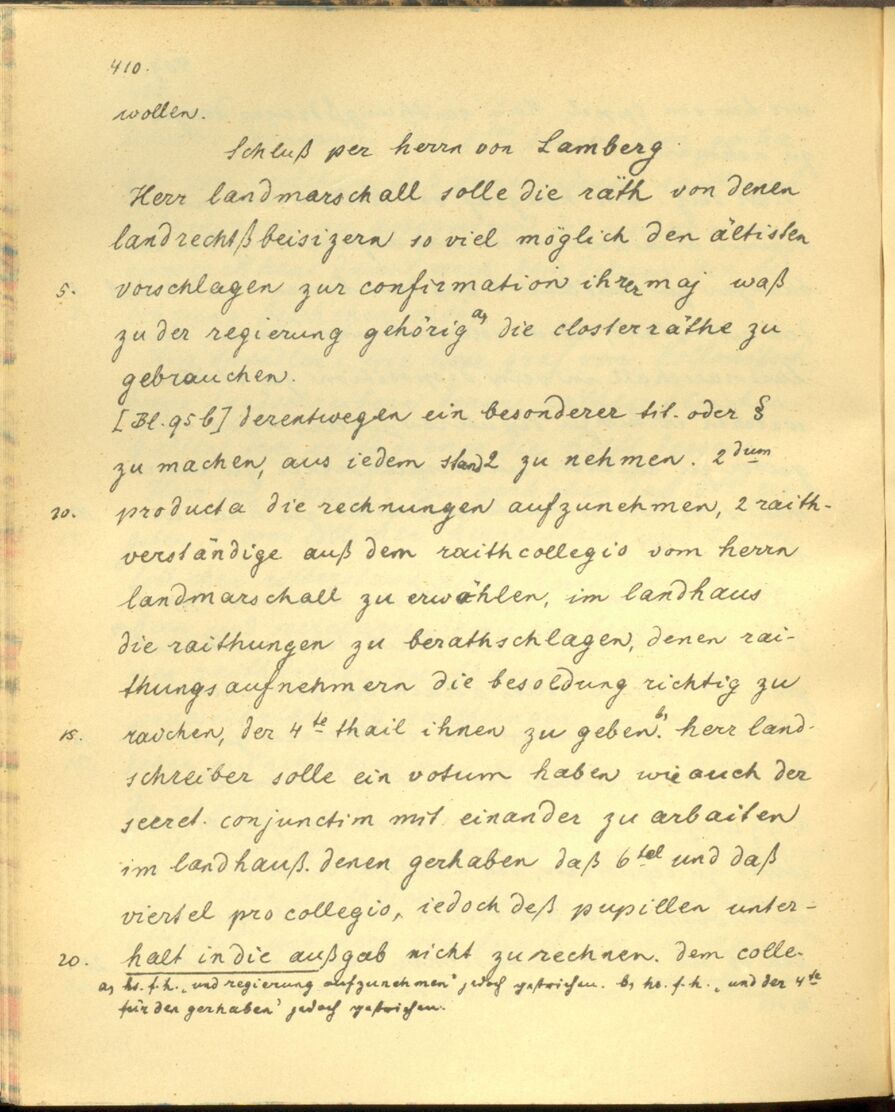 410.
wollen.
Schluß per herrn von Lamberg.
Herr landmarschall solle die räth von denen
landrechtßbeisizern so viel möglich den ältisten
5. vorschlagen zur confirmation ihrer maj waß
zu der regierung gehörig a) die closterräthe zu
gebrauchen.
[Bl. 95 b] derentwegen ein besonderer tit. oder §
zu machen, aus iedem stand 2 zu nehmen. 2dum
10. producta die rechnungen aufzunehmen, 2 raith-
verständige auß dem raithcollegio vom herrn
landmarschall zu erwählen, im landhaus
die raithungen zu berathschlagen, denen rai-
thungsaufnehmern die besoldung richtig zu
15. raichen, der 4te thail ihnen zu geben b). herr land-
schreiber solle ein votum haben wie auch der
secret. conjunctim mit einander zu arbaiten
im landhauß. denen gerhaben daß 6tel und daß
viertel pro collegio, iedoch deß pupillen unter-
20. halt in die außgab nicht zu rechnen. dem colle-
a) hs. f. h. „und regierung aufzunehmen" jedoch gestrichen. b) hs. f. h. „und der 4te
für den gerhaben" jedoch gestrichen.